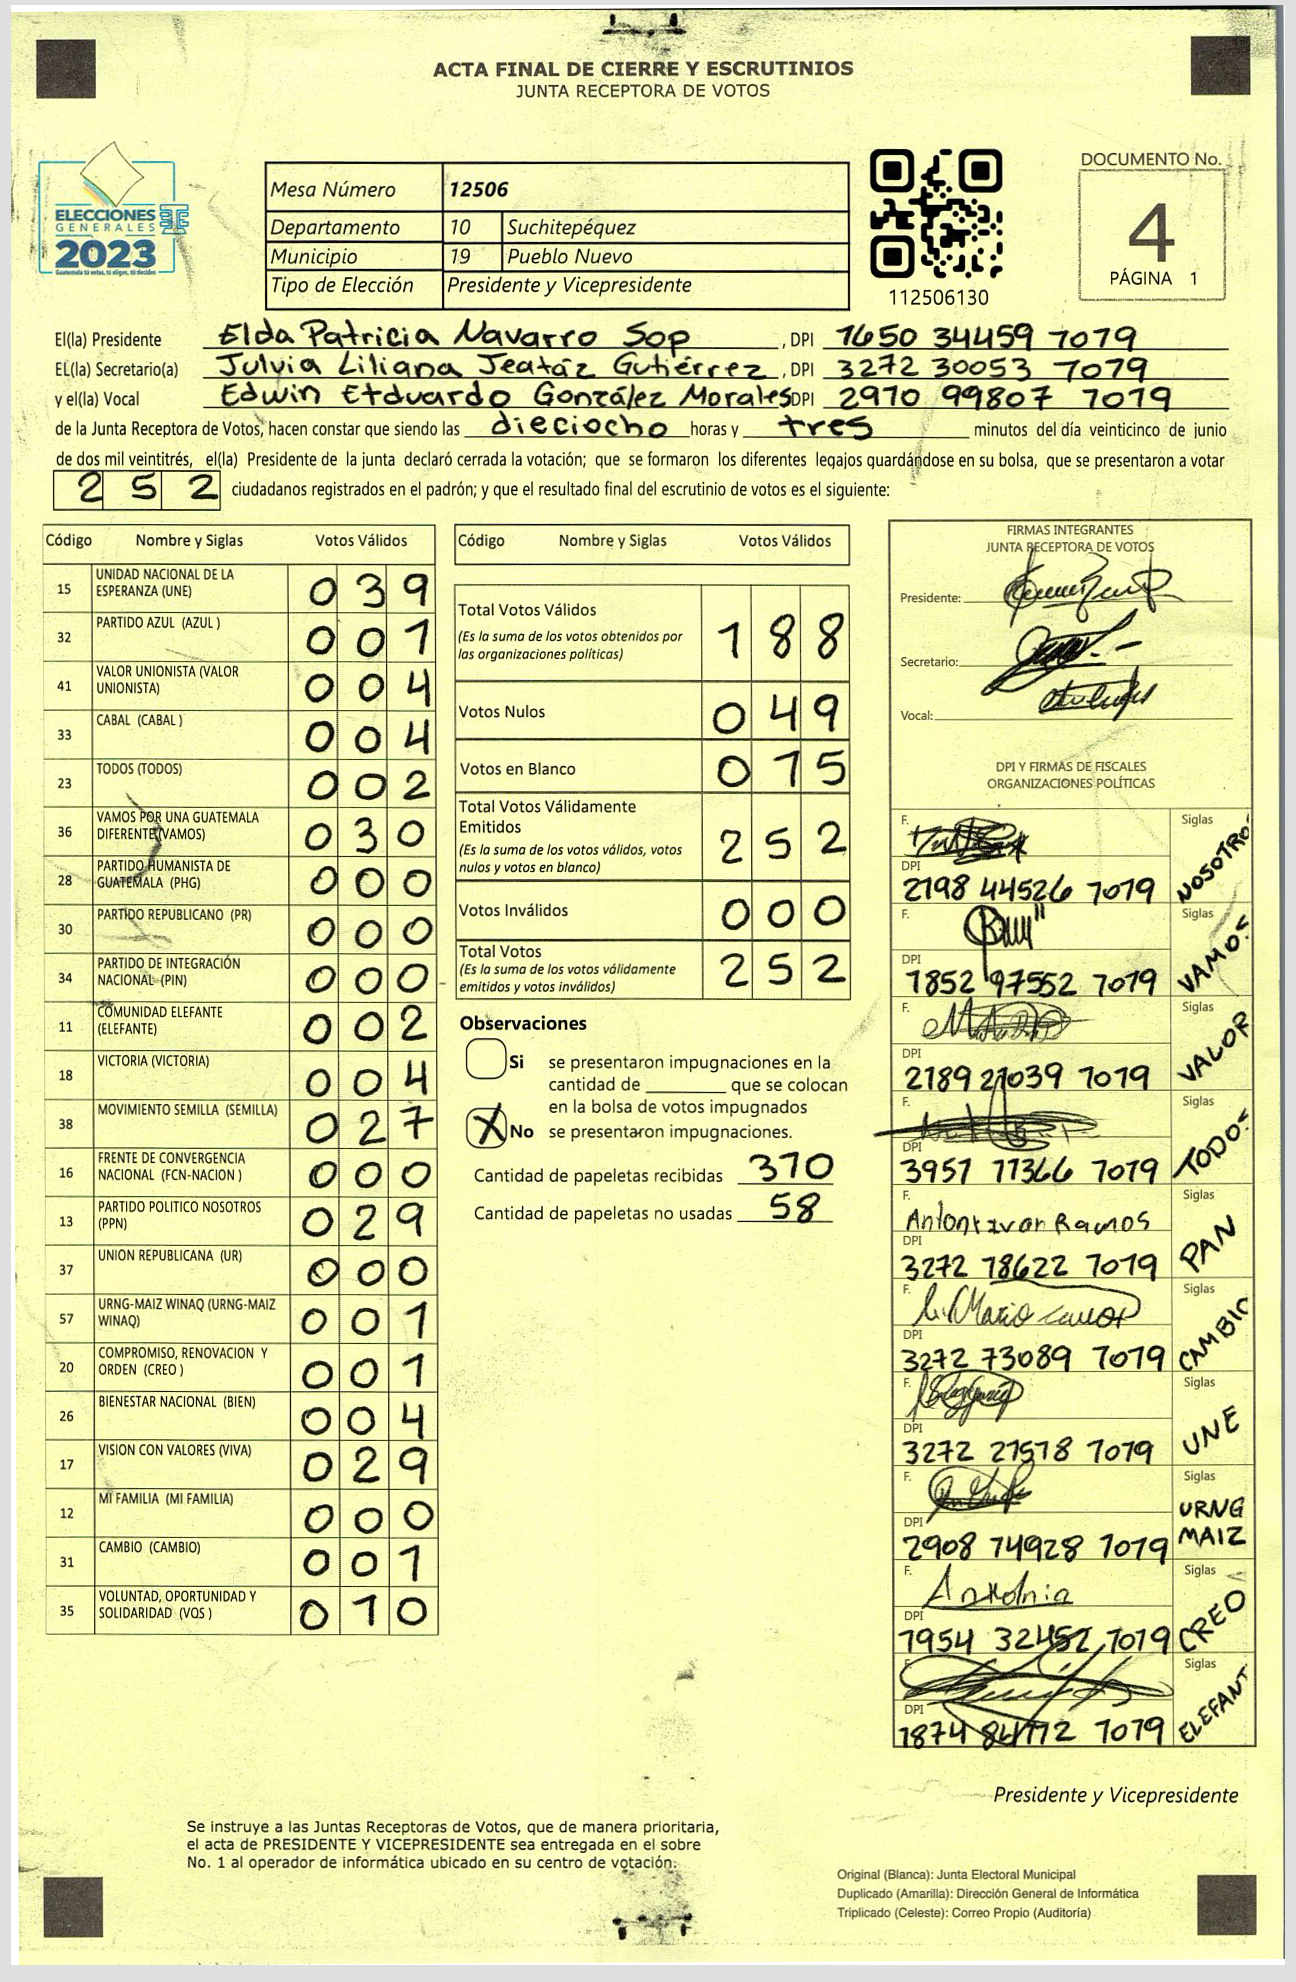 ACTA FINAL DE CIERRE Y ESCRUTINIOS
JUNTA RECEPTORA DE VOTOS
ELECCIONES
GENERALES
2023
Guatemala tú votas, tú eliges, tú decides
Mesa Número 12506
Departamento 10 Suchitepéquez
Municipio 19 Pueblo Nuevo
Tipo de Elección Presidente y Vicepresidente
112506130
DOCUMENTO No.
4
PÁGINA 1
El(la) Presidente Elda Patricia Navarro Sop, DPI 1650 34459 7079
EL(la) Secretario(a) Julvia Liliana Jeatáz Gutiérrez, DPI 3272 30053 7079
y el(la) Vocal Edwin Etduardo González Morales DPI 2970 99807 7079
de la Junta Receptora de Votos, hacen constar que siendo las dieciocho horas y tres minutos del día veinticinco de junio
de dos mil veintitrés, el(la) Presidente de la junta declaró cerrada la votación; que se formaron los diferentes legajos guardándose en su bolsa, que se presentaron a votar
252 ciudadanos registrados en el padrón; y que el resultado final del escrutinio de votos es el siguiente:
Código Nombre y Siglas Votos Válidos
15 UNIDAD NACIONAL DE LA ESPERANZA (UNE) 039
32 PARTIDO AZUL (AZUL ) 001
41 VALOR UNIONISTA (VALOR UNIONISTA) 004
33 CABAL (CABAL ) 004
23 TODOS (TODOS) 002
36 VAMOS POR UNA GUATEMALA DIFERENTE (VAMOS) 030
28 PARTIDO HUMANISTA DE GUATEMALA (PHG) 000
30 PARTIDO REPUBLICANO (PR) 000
34 PARTIDO DE INTEGRACIÓN NACIONAL (PIN) 000
11 COMUNIDAD ELEFANTE (ELEFANTE) 002
18 VICTORIA (VICTORIA) 004
38 MOVIMIENTO SEMILLA (SEMILLA) 027
16 FRENTE DE CONVERGENCIA NACIONAL (FCN-NACION ) 000
13 PARTIDO POLITICO NOSOTROS (PPN) 029
37 UNION REPUBLICANA (UR) 000
57 URNG-MAIZ WINAQ (URNG-MAIZ WINAQ) 001
20 COMPROMISO, RENOVACION Y ORDEN (CREO ) 001
26 BIENESTAR NACIONAL (BIEN) 004
17 VISION CON VALORES (VIVA) 029
12 MI FAMILIA (MI FAMILIA) 000
31 CAMBIO (CAMBIO) 001
35 VOLUNTAD, OPORTUNIDAD Y SOLIDARIDAD (VOS ) 010
Código Nombre y Siglas Votos Válidos
Total Votos Válidos 188
(Es la suma de los votos obtenidos por las organizaciones políticas)
Votos Nulos 049
Votos en Blanco 015
Total Votos Válidamente Emitidos 252
(Es la suma de los votos válidos, votos nulos y votos en blanco)
Votos Inválidos 000
Total Votos 252
(Es la suma de los votos válidamente emitidos y votos inválidos)
Observaciones
Si se presentaron impugnaciones en la
cantidad de ________ que se colocan
en la bolsa de votos impugnados
X No se presentaron impugnaciones.
Cantidad de papeletas recibidas 310
Cantidad de papeletas no usadas 58
FIRMAS INTEGRANTES
JUNTA RECEPTORA DE VOTOS
Presidente:
Secretario:
Vocal:
DPI Y FIRMAS DE FISCALES
ORGANIZACIONES POLÍTICAS
F. Siglas NOSOTROS
DPI 2198 44526 7079
F. Siglas VAMOS
DPI 1852 97552 7079
F. Siglas VALOR
DPI 2189 21039 7079
F. Siglas TODOS
DPI 3951 11366 7079
F. Ramos Siglas PAN
DPI 3272 18622 7079
F. Mario Siglas CAMBIO
DPI 3272 73089 7079
F. Siglas UNE
DPI 3272 21518 7079
F. Siglas URNG MAIZ
DPI 2908 74928 7079
F. Antolnia Siglas CREO
DPI 1954 32452 7079
F. Siglas ELEFANT
DPI 1874 7079
Presidente y Vicepresidente
Se instruye a las Juntas Receptoras de Votos, que de manera prioritaria,
el acta de PRESIDENTE Y VICEPRESIDENTE sea entregada en el sobre
No. 1 al operador de informática ubicado en su centro de votación.
Original (Blanca): Junta Electoral Municipal
Duplicado (Amarilla): Dirección General de Informática
Triplicado (Celeste): Correo Propio (Auditoría)